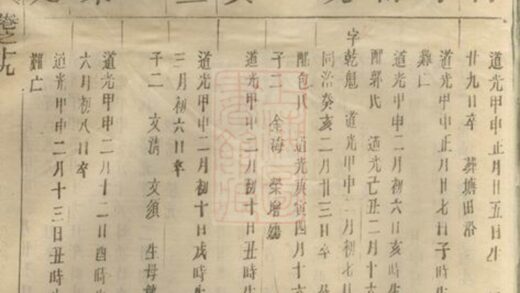 道光甲申正月五日生
廿九日卒 葬塘田
道光甲申正月廿七日子時生
難亡
道光甲申二月初六日亥時生
配郭氏 道光己丑二月十六
字乾魁 道光甲申二月初七日
同治癸亥二月廿三日卒
配包氏 道光庚寅四月十六
子二 金海 榮增
道光甲申二月初十日生
道光甲申二月初十日戌時生
三月初六日卒
子二 文清 文須 生母
道光甲申二月十二日酉時生
六月初八日卒
道光甲申二月十三日丑時生
難亡